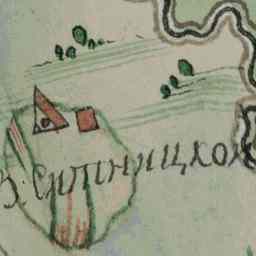 З. Ситницкой